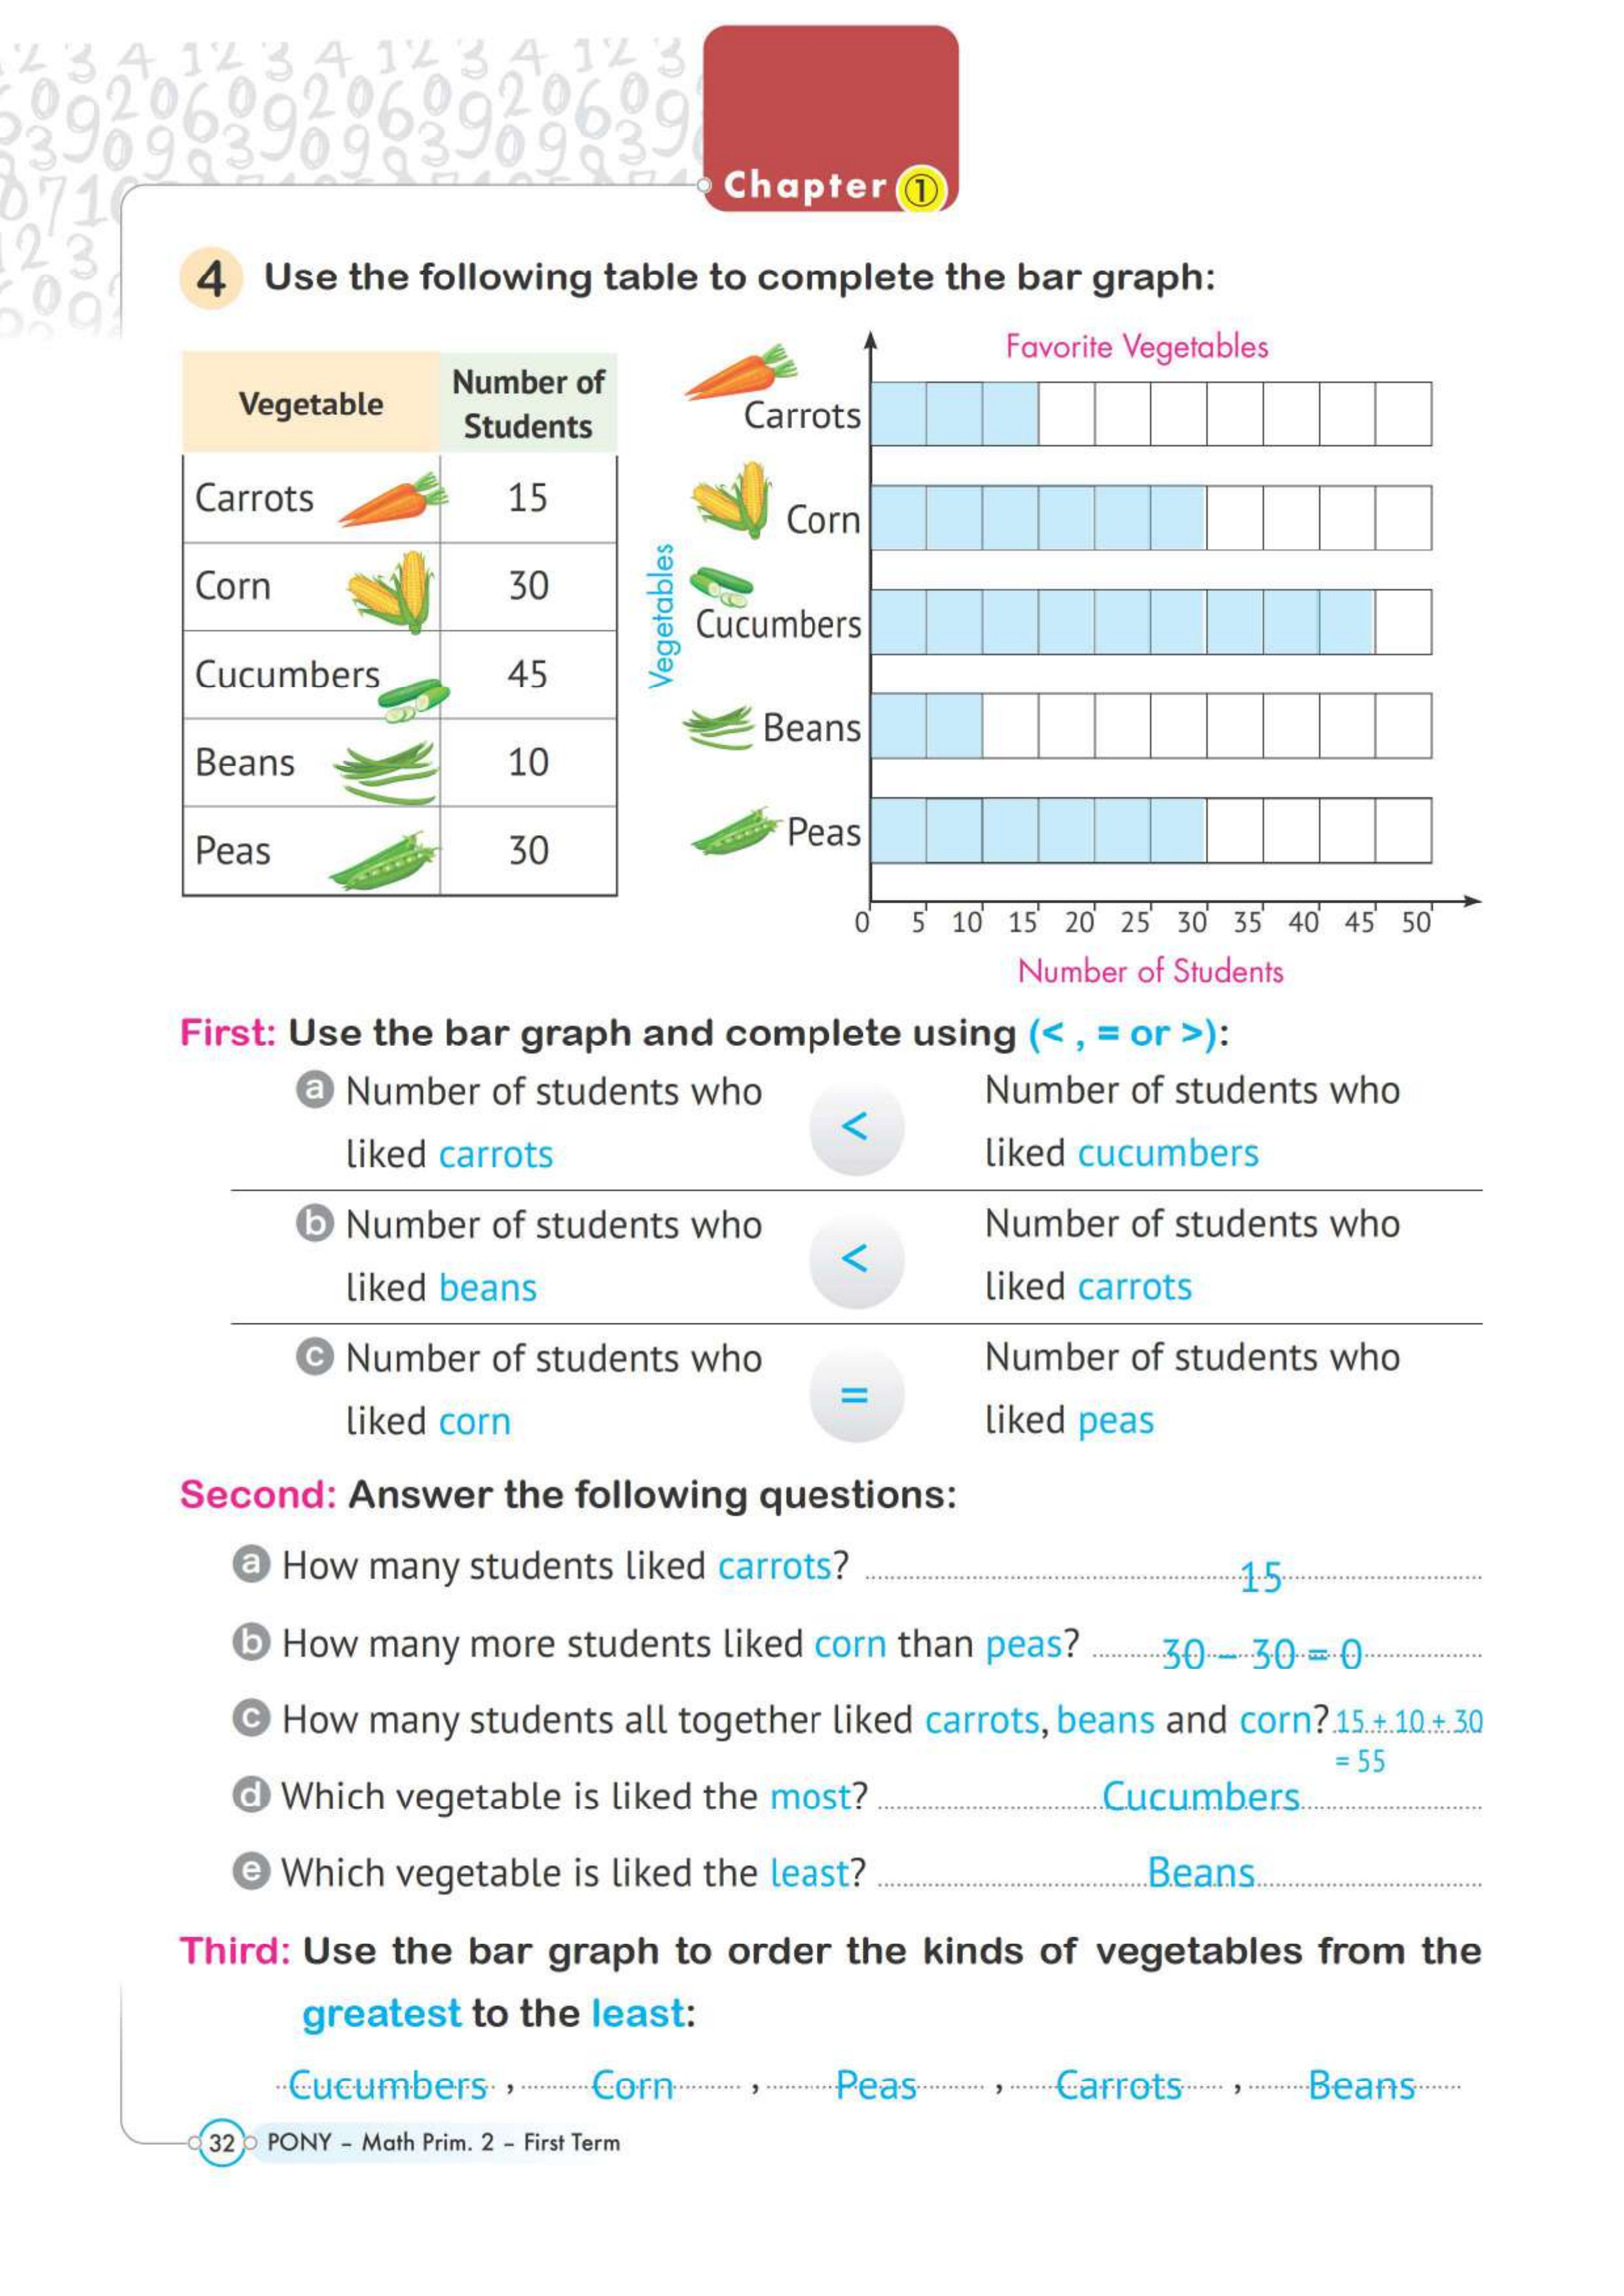 Chapter 1
4 Use the following table to complete the bar graph:
Vegetable Number of Students
Carrots 15
Corn 30
Cucumbers 45
Beans 10
Peas 30
Favorite Vegetables
Vegetables
Carrots
Corn
Cucumbers
Beans
Peas
0 5 10 15 20 25 30 35 40 45 50
Number of Students
First: Use the bar graph and complete using (< , = or >):
a Number of students who liked carrots < Number of students who liked cucumbers
b Number of students who liked beans < Number of students who liked carrots
c Number of students who liked corn = Number of students who liked peas
Second: Answer the following questions:
a How many students liked carrots? 15
b How many more students liked corn than peas? 30 – 30 = 0
c How many students all together liked carrots, beans and corn? 15 + 10 + 30
= 55
d Which vegetable is liked the most? Cucumbers
e Which vegetable is liked the least? Beans
Third: Use the bar graph to order the kinds of vegetables from the
greatest to the least:
Cucumbers , Corn , Peas , Carrots , Beans
32 PONY – Math Prim. 2 – First Term